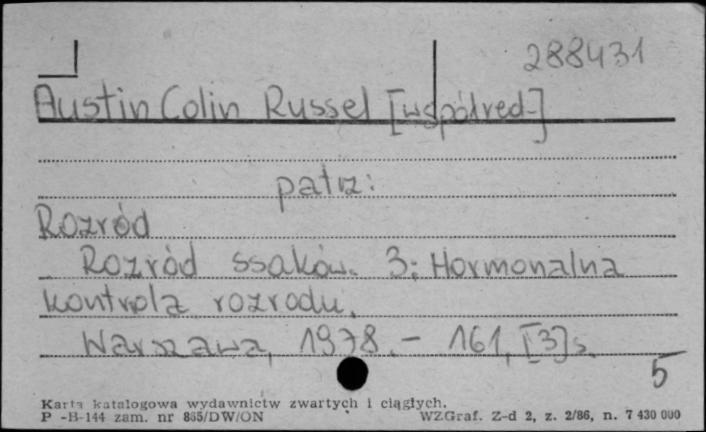 288431
Austin Colin Russel [współred-]
patrz:
Rozród
Rozród ssaków. 3: Hormonalna
kontrola rozrodu.
Warszawa, 1978. - 161, [3]s.
5
Karta katalogowa wydawnictw zwartych i ciągłych.
P -B-144 zam. nr 865/DW/ON WZGraf. Z-d 2, z. 2/86, n. 7 430 000